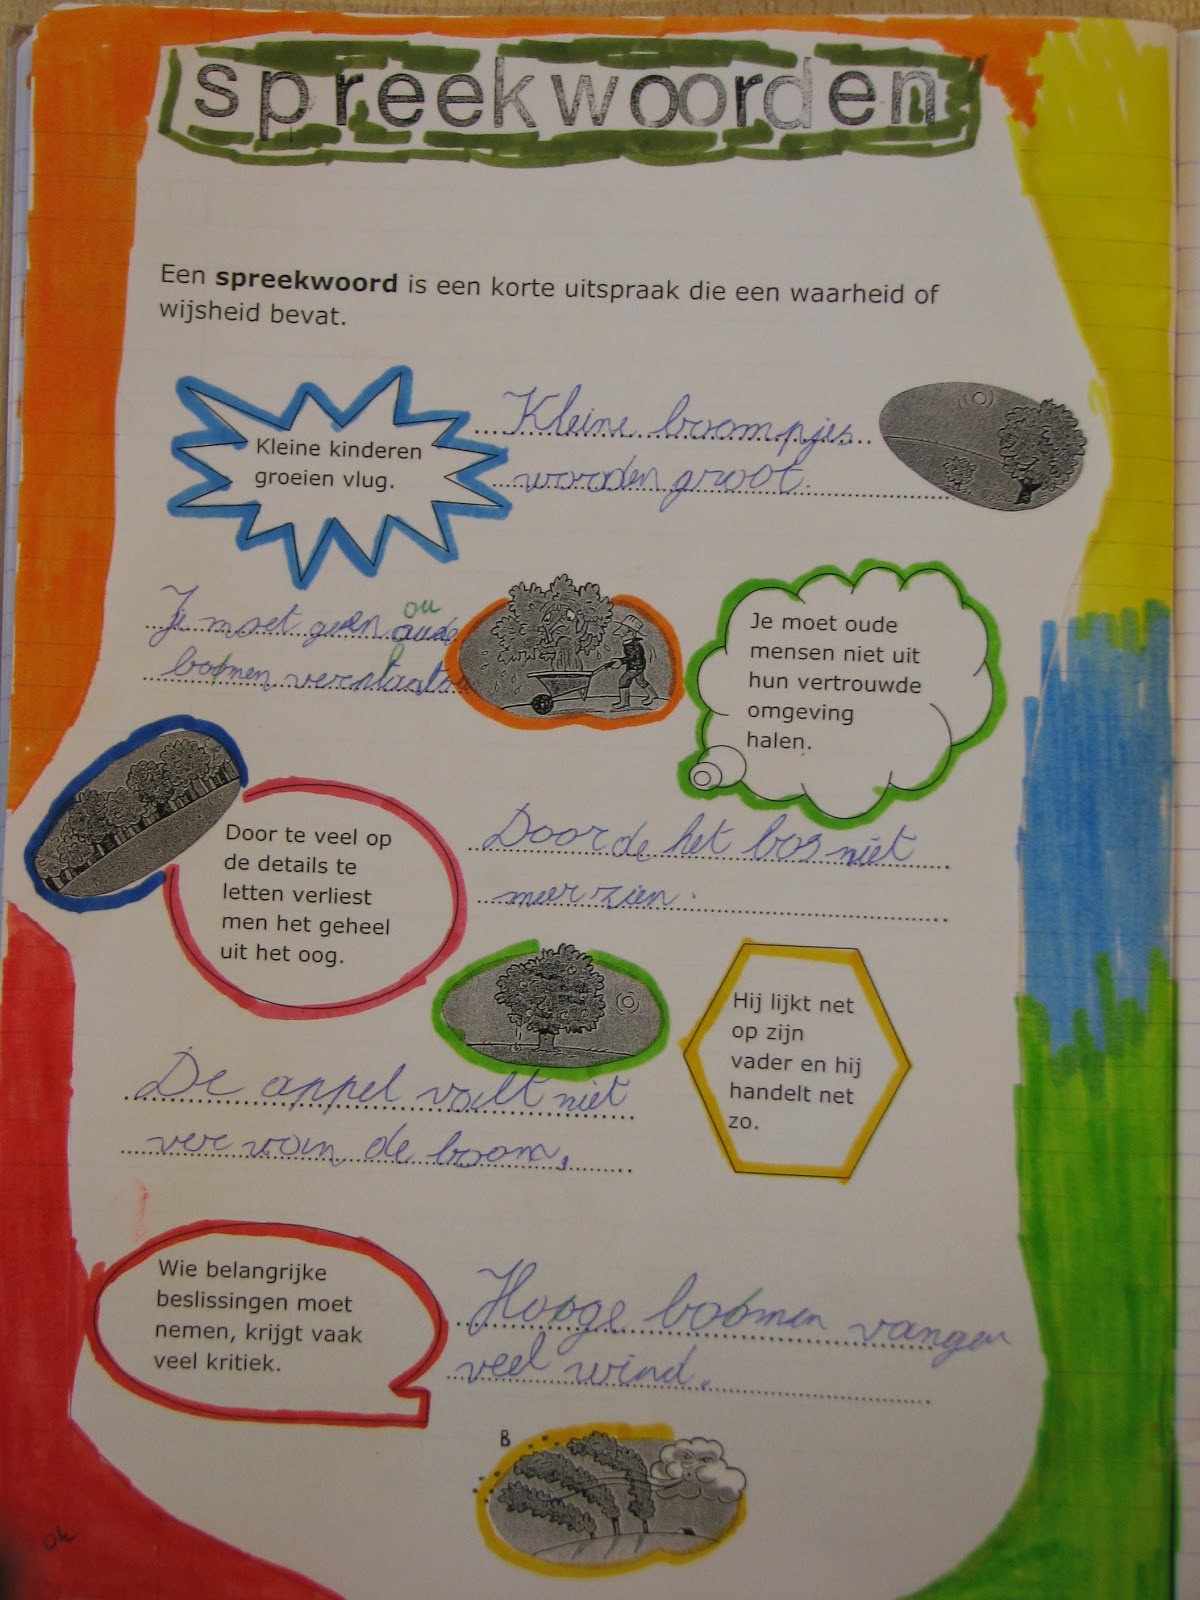 spreekwoorden
Een spreekwoord is een korte uitspraak die een waarheid of
wijsheid bevat.
Kleine kinderen
groeien vlug.
Kleine boompjes
worden groot.
Je moet geen oude
bomen verplaatsen
ou
Je moet oude
mensen niet uit
hun vertrouwde
omgeving
halen.
Door te veel op
de details te
letten verliest
men het geheel
uit het oog.
Door de het bos niet
meer zien.
Hij lijkt net
op zijn
vader en hij
handelt net
zo.
De appel valt niet
ver van de boom.
Wie belangrijke
beslissingen moet
nemen, krijgt vaak
veel kritiek.
Hooge boomen vangen
veel wind.
B
ok